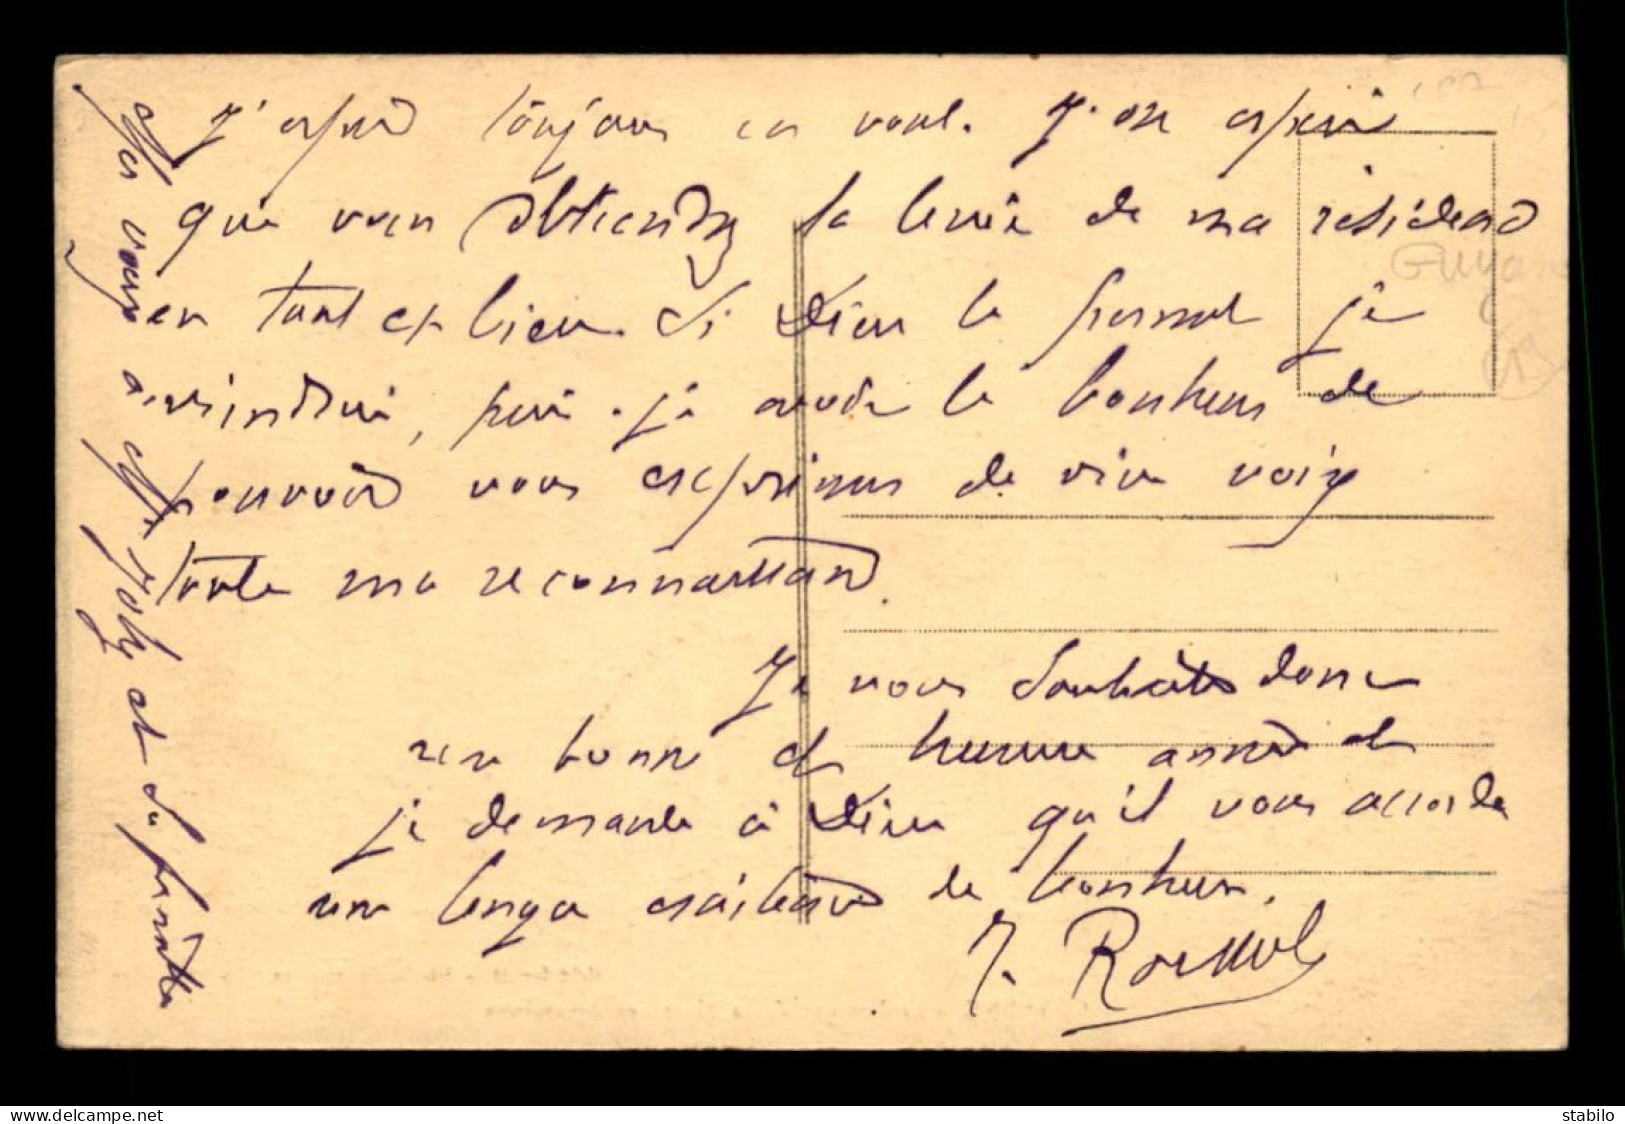 J'espère toujours en vous. J'ose espérer
que vous obtiendrez la levée de ma résidence
en tant et lieu. Si Dieu le permet je
viendrai, puis je avoir le bonheur de
pouvoir vous exprimer de vive voix
toute ma reconnaissance.
Je vous souhaite donc
une bonne et heureuse année et
je demande à Dieu qu'il vous accorde
une longue existence de bonheur.
J. Roussel
vous
et
Guyane
cp delcampe
stabilo